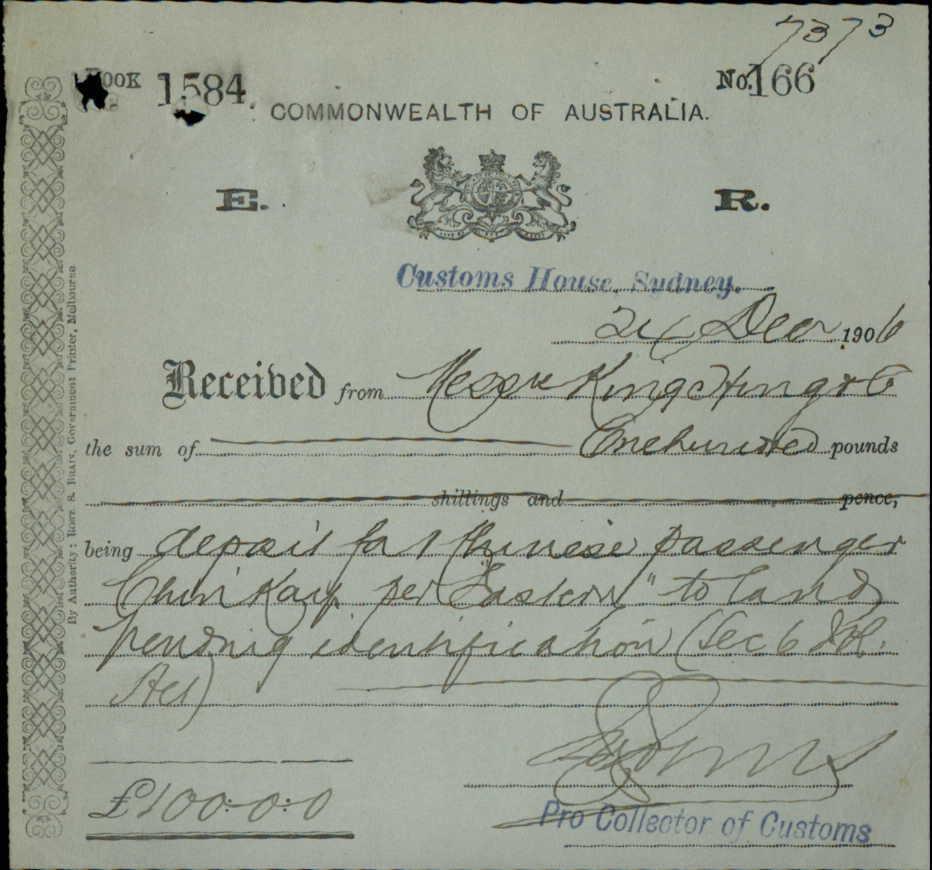 7373
BOOK 1584. No. 166
COMMONWEALTH OF AUSTRALIA.
E. R.
Customs House, Sydney.
24 Decr 1906
Received from Messrs King Hing & Co
the sum of One hundred pounds
shillings and pence,
being deposit for 1 Chinese passenger
Chin Kay per "Eastern" to land
pending identification (Sec 6
Act)
£100:0:0
Pro Collector of Customs
By Authority: ROBT. S. BRAIN, Government Printer, Melbourne